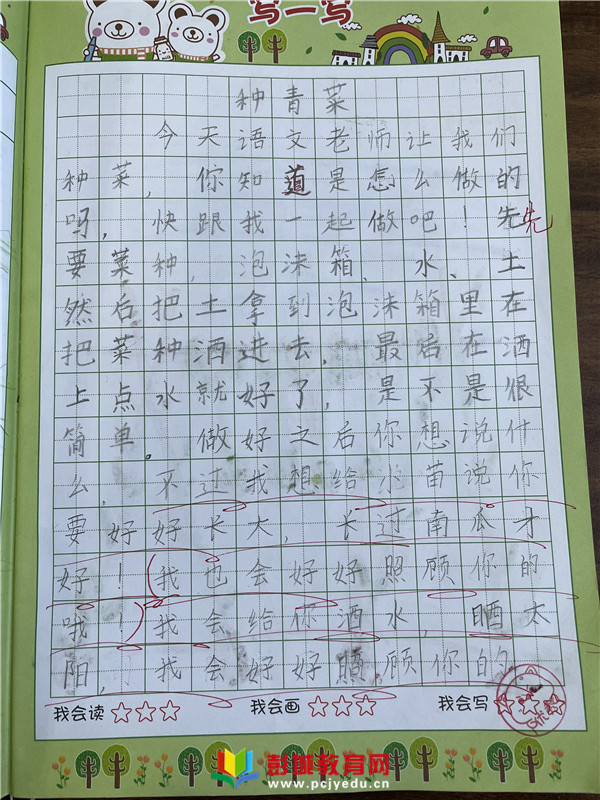 写一写
种青菜
今天语文老师让我们
种菜，你知道是怎么做的
吗，快跟我一起做吧！先先
要菜种，泡沫箱、水、土
然后把土拿到泡沫箱里在
把菜种洒进去，最后在洒
上点水就好了，是不是很
简单。做好之后你想说什
么，不过我想给小苗说你
要好好长大，长过南瓜才
好！（我也会好好照顾你的
哦！）我会给你洒水，晒太
阳，我会好好照顾你的
我会读
我会画
我会写
彭城教育网
www.pcjyedu.cn